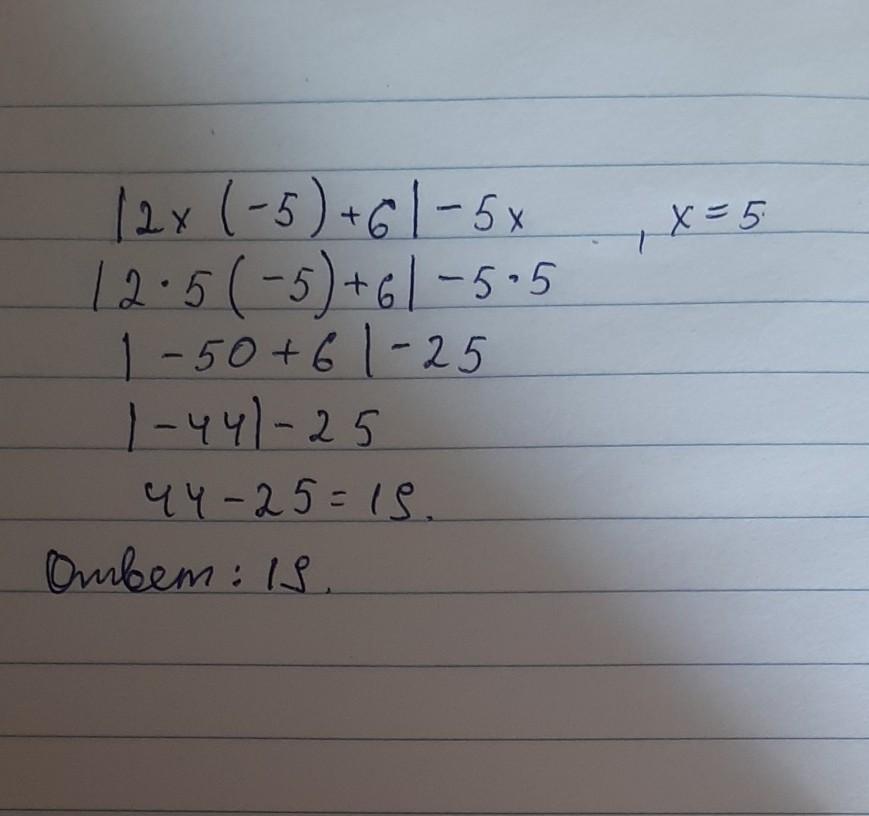 |2x (-5)+6|-5x , x=5
|2·5(-5)+6|-5·5
|-50+6|-25
|-44|-25
44-25=19.
Ответ: 19.